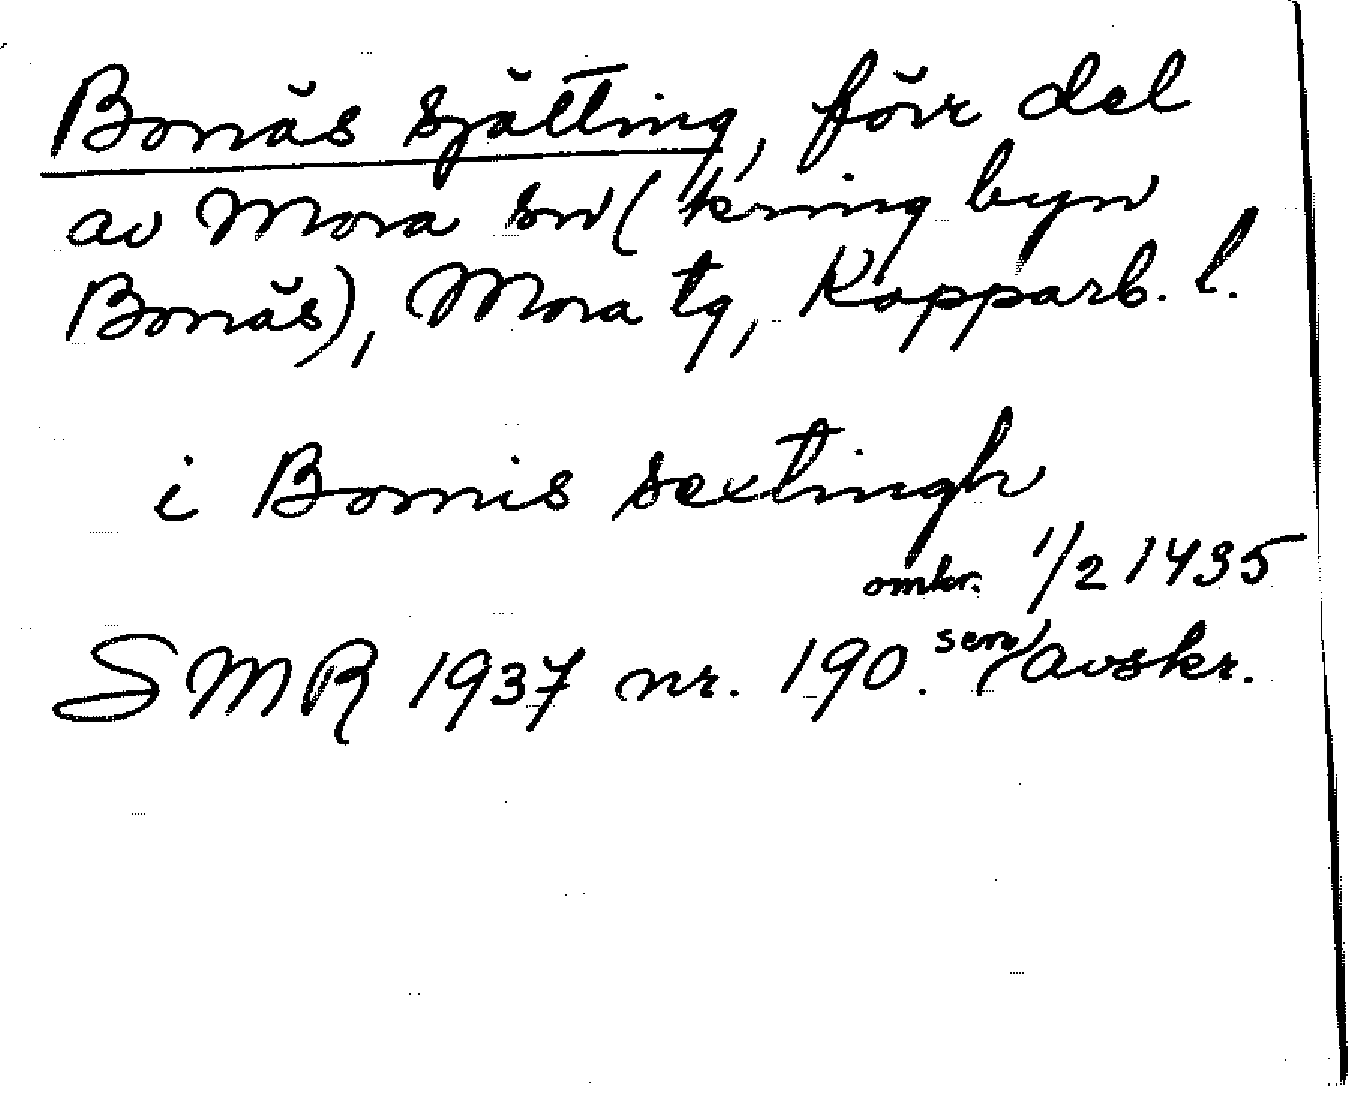 Bonäs sjätting, förr del
av Mora sn (kring byn
Bonäs), Mora tg, Kopparb. l.
i Bornis sextingh
omkr. 1/2 1435
SMR 1937 nr. 190. sen avskr.